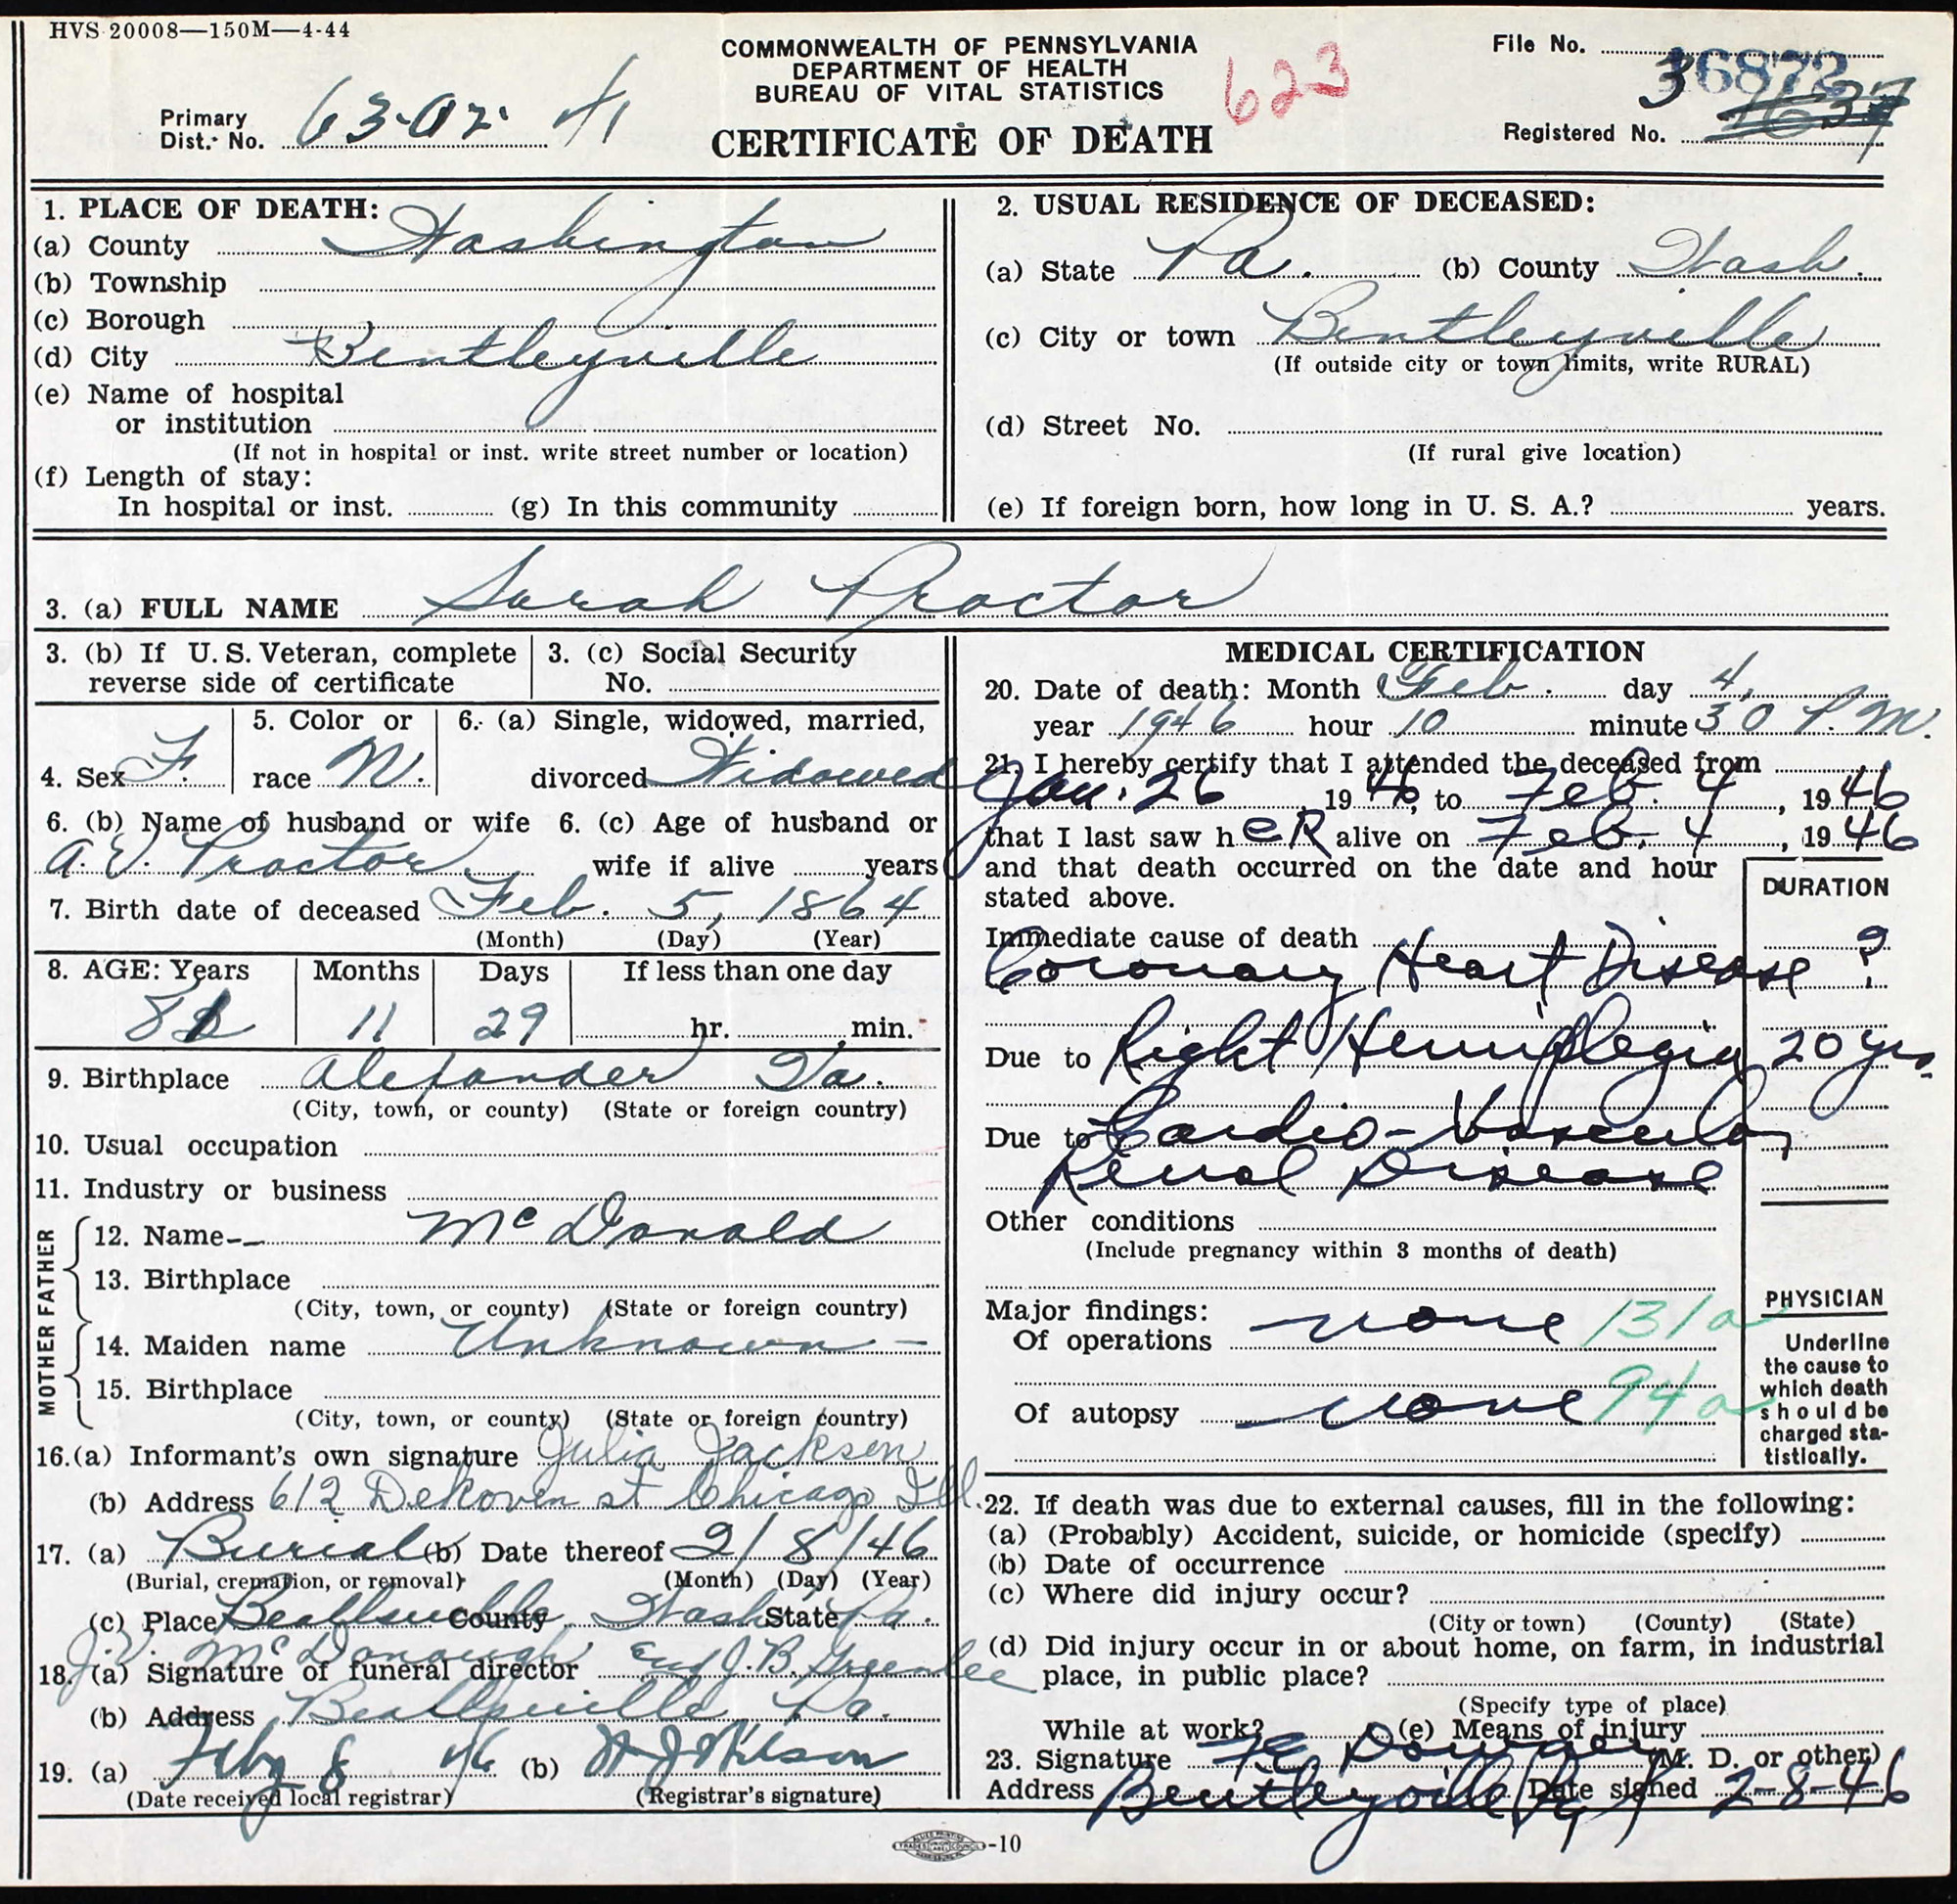 HVS 20008—150M—4-44
COMMONWEALTH OF PENNSYLVANIA
DEPARTMENT OF HEALTH
BUREAU OF VITAL STATISTICS
CERTIFICATE OF DEATH
623
File No. 36872
Registered No.
Primary
Dist. No. 63-02-41
1. PLACE OF DEATH:
(a) County Washington
(b) Township
(c) Borough
(d) City Bentleyville
(e) Name of hospital
or institution
(If not in hospital or inst. write street number or location)
(f) Length of stay:
In hospital or inst. (g) In this community
2. USUAL RESIDENCE OF DECEASED:
(a) State Pa. (b) County Wash.
(c) City or town Bentleyville
(If outside city or town limits, write RURAL)
(d) Street No.
(If rural give location)
(e) If foreign born, how long in U. S. A.? years.
3. (a) FULL NAME Sarah Proctor
3. (b) If U. S. Veteran, complete
reverse side of certificate
3. (c) Social Security
No.
4. Sex F.
5. Color or
race N.
6. (a) Single, widowed, married,
divorced Widowed
6. (b) Name of husband or wife
A. V. Proctor
6. (c) Age of husband or
wife if alive years
7. Birth date of deceased Feb. 5, 1864
(Month) (Day) (Year)
8. AGE: Years Months Days If less than one day
81 11 29 hr. min.
9. Birthplace Alexander Va.
(City, town, or county) (State or foreign country)
10. Usual occupation
11. Industry or business
FATHER
12. Name-- McDonald
13. Birthplace
(City, town, or county) (State or foreign country)
MOTHER
14. Maiden name Unknown -
15. Birthplace
(City, town, or county) (State or foreign country)
16.(a) Informant's own signature Julia Jackson
(b) Address 612 DeKoven st Chicago Ill.
17. (a) Burial (b) Date thereof 2/8/46
(Burial, cremation, or removal) (Month) (Day) (Year)
(c) Place Beallsville County Wash State Pa.
J. V. McDonough
18. (a) Signature of funeral director J. B. Greenlee
(b) Address Beallsville Pa.
19. (a) Feby 8 46 (b) W J Wilson
(Date received local registrar) (Registrar's signature)
MEDICAL CERTIFICATION
20. Date of death: Month Feb. day 4,
year 1946 hour 10 minute 30 P.M.
21. I hereby certify that I attended the deceased from
Jan. 26 1946, to Feb. 4, 1946
that I last saw her alive on Feb. 4, 1946
and that death occurred on the date and hour
stated above.
DURATION
Immediate cause of death
Coronary Heart Disease ?
Due to Right Hemiplegia 20 yrs.
Due to Cardio-Vascular
Renal Disease
Other conditions
(Include pregnancy within 3 months of death)
Major findings:
Of operations none 131a
Of autopsy none 94a
PHYSICIAN
Underline
the cause to
which death
should be
charged sta-
tistically.
22. If death was due to external causes, fill in the following:
(a) (Probably) Accident, suicide, or homicide (specify)
(b) Date of occurrence
(c) Where did injury occur?
(City or town) (County) (State)
(d) Did injury occur in or about home, on farm, in industrial
place, in public place?
(Specify type of place)
While at work? (e) Means of injury
23. Signature (M. D. or other)
Address Bentleyville Pa Date signed 2-8-46
-10